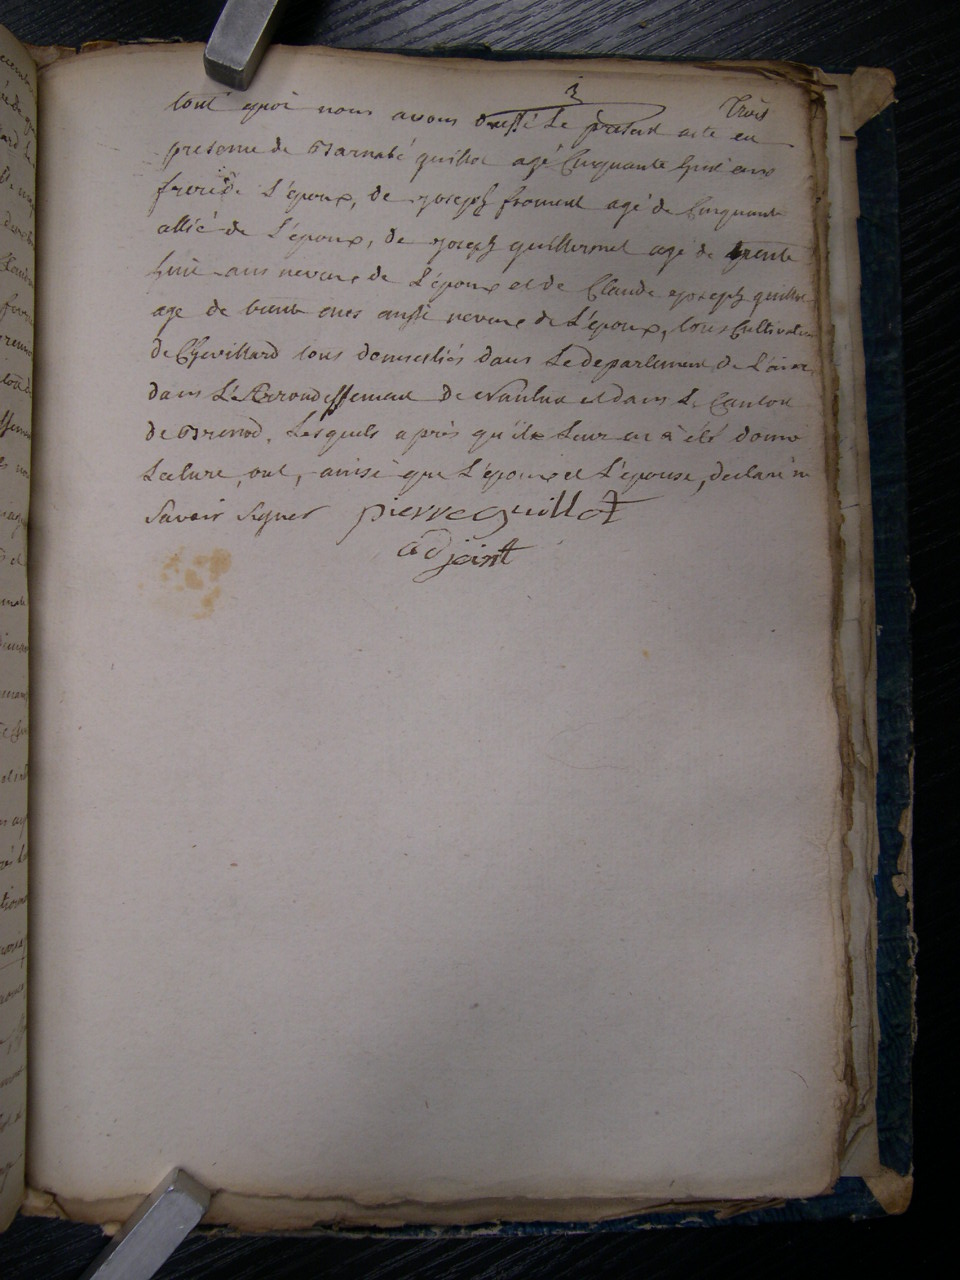 3
trois
tout quoi nous avons dressé le present acte en
presence de Barnabé guillot agé Cinquante huit ans
frere de L'époux, de joseph froment agé de Cinquante
allié de L'époux, de joseph guillermet age de trente
huit ans neveux de L'époux et de Claude joseph guillot
age de trente ans aussi neveux de L'époux, tous Cultivateurs
de Chevillard tous domiciliés dans Le departement de L'ain
dans L'Arrondissement de Nantua et dans Le Canton
de Brenod, Lesquels après qu'il Leur en à été donné
Lecture, ont, ainsi que L'époux et L'épouse, declaré ne
Savoir Signer pierre guillot
adjoint